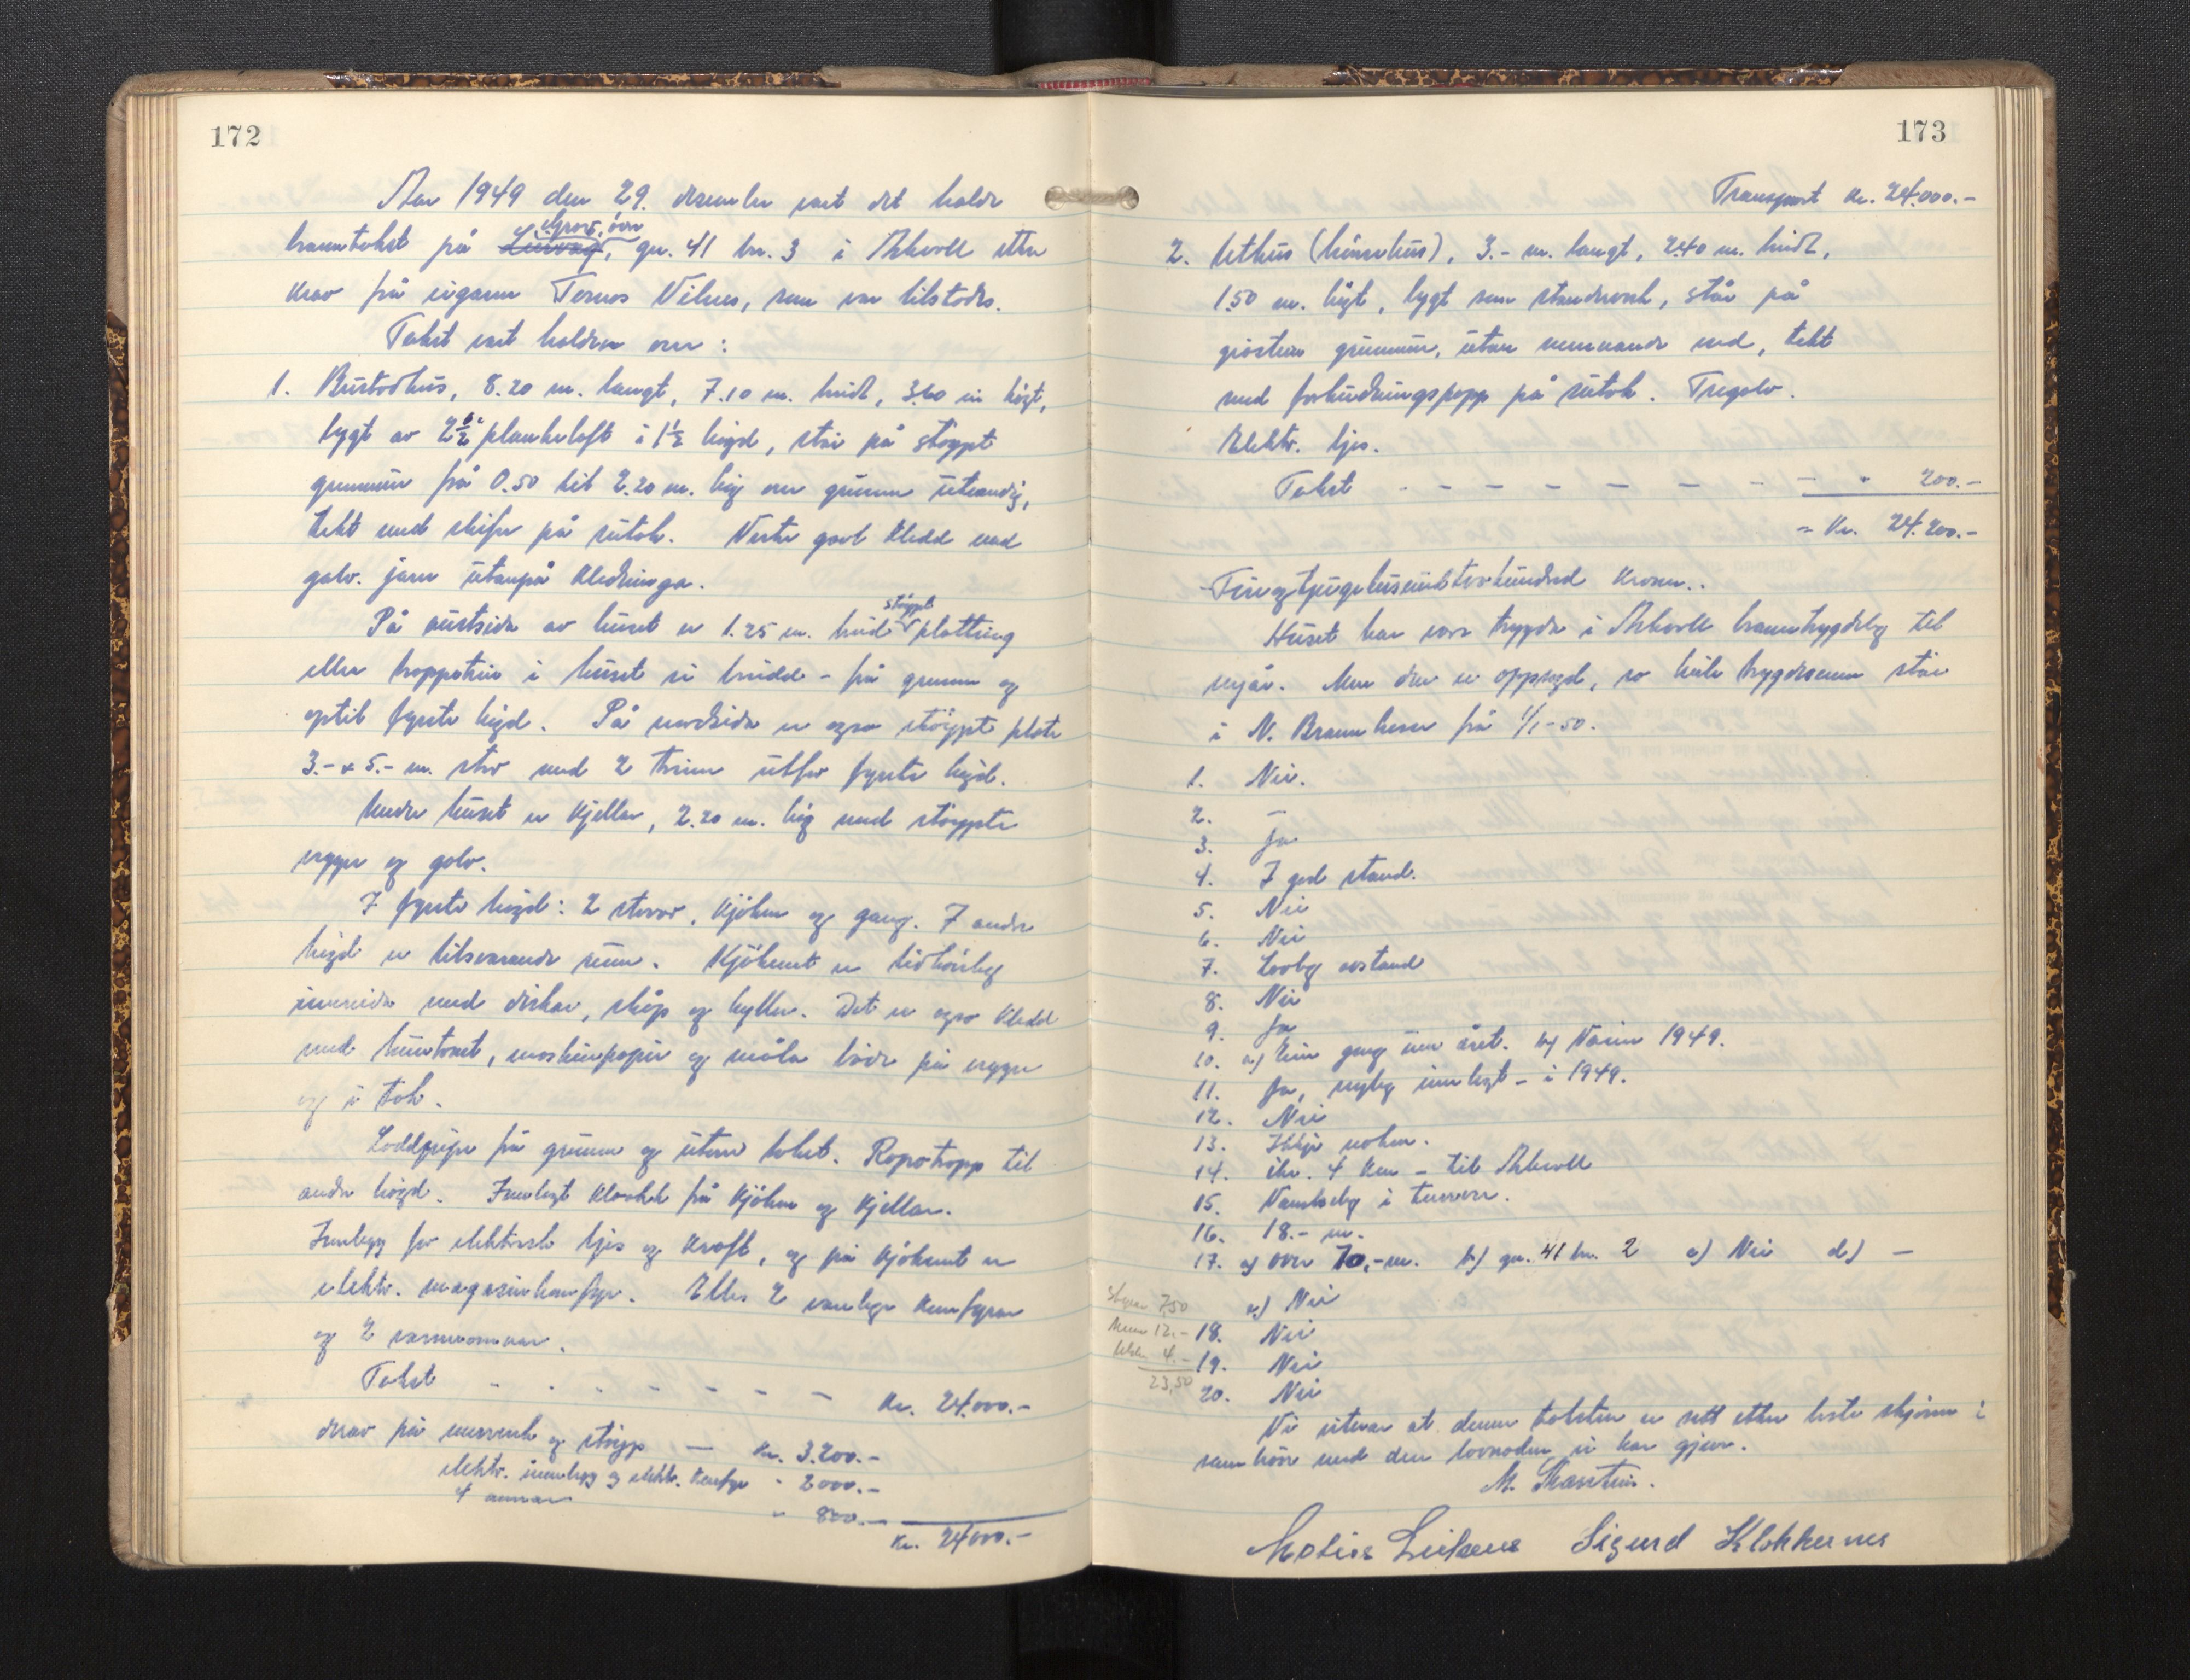 172
Aar 1949 den 29. desember vart det halde
Grov, øvre
branntakst på Leirvåg, gn. 41 bn. 3 i Askvoll etter
krav frå eigaren Tomas Vilnes, som var tilstades.
Takst vart halden over:
1. Bustadhus, 8.20 m. langt, 7.10 m. breidt, 3.60 m høgt,
bygt av 2½" plankeloft i 1½ høgd, står på støypt
grunnmur frå 0.50 til 2.20 m. høg over grunnen utvendig,
tekt med skifer på sutak. Vestre gavl kledd med
galv. jarn utanpå kledninga.
støypt
På austsida av huset er 1.25 m. breid platting
eller troppetrin i huset si breidde - frå grunnen og
optil fyrste høgd. På nordsida er ogso støypt plate
3.- x 5.- m. stor med 2 trinn utfor fyrste høgd.
Under huset er kjellar, 2.20 m. høg med støypte
vegger og golv.
I fyrste høgd: 2 stovor, kjøken og gang. I andre
høgd er tilsvarande rum. Kjøkenet er tidhøveleg
innreida med diskar, skåp og hyller. Det er ogso kledd
med huntonit, maskinpapir og måla både på vegger
og i tak.
Loddpipe frå grunnen og utover taket. Ropotropp til
andre høgd. Innlagt kloakk frå kjøken og kjellar.
Innlegg for elektrisk ljos og kraft, og på kjøkenet er
elektr. magasinkomfyr. Elles 2 vanlege komfyrar
og 2 varmeomnar.
Takst - - - - - - - Kr. 24.000.-
derav på murverk og støyp — Kr. 3.200.-
elektr. innlegg og elektr. komfyr " 2000.-
4 omnar " 800.-
Kr. 24000.-
173
Transport Kr. 24.000.-
2. Uthus (hønsehus), 3.- m. langt, 2.40 m. breidt,
1.50 m. høgt, bygt som stenderverk, står på
gråsteins grunnmur, utan nemnande verd, tekt
med forhudningspapp på sutak. Tregolv.
Elektr. ljos.
Takst - - - - - - - - - " 200.-
= Kr. 24.200.-
Fireogtjugetusundtvohundred kroner..
Huset har vore trygda i Askvoll branntrygdelag til
nyår. Men den er oppsagd, so heile trygdesumen står
i N. Brannkasse frå 1/1-50.
1. Nei.
2. —
3. Ja
4. I god stand.
5. Nei
6. Nei
7. Lovleg avstand
8. Nei
9. Ja
10. a) Ein gong um året. b) Våren 1949.
11. Ja, nyleg innlagt - i 1949.
12. Nei
13. Ikkje noken.
14. ikr. 4 km - til Askvoll
15. Vanskeleg i turrver.
16. 18.- m.
17. a) over 70,- m. b) gn. 41 bn. 2 c) Nei d) —
e) Nei
18. Nei
19. Nei
20. Nei
Skyss 7,50
Menn 12.-
4.-
23,50
Vi vitnar at denne taksten er sett etter beste skjøn i
samhøve med den lovnaden vi har gjeve.
M. Skarstein.
Matias Leikanes Sigurd Klokkernes